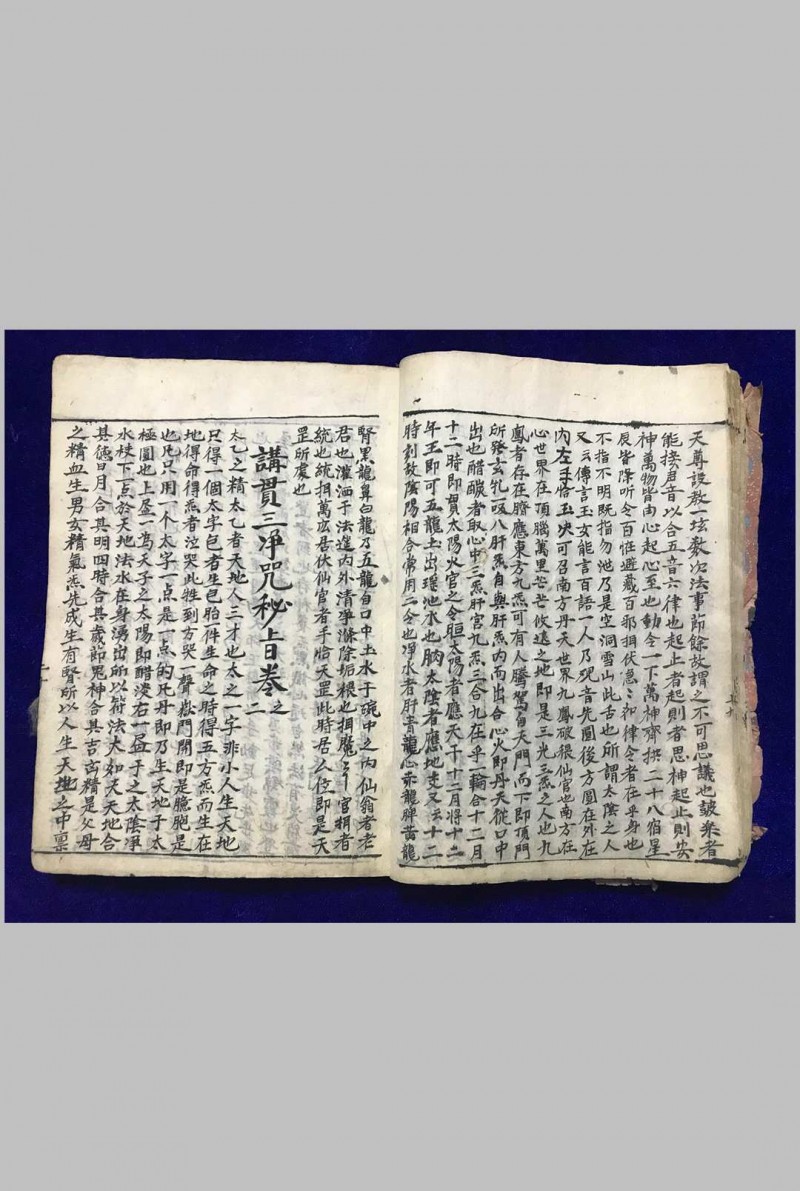 天尊設教一坛数次法事節餘故謂之不可思議也皷樂者
能接声音以合五音六律也起止者起則者思神起止則安
神萬物皆由心起心至也動令一下萬神齊拱二十八宿星
辰皆降听令百怪避藏百邪拱伏急〻如律令者在乎身也
不指不明既指勿泄乃是空洞雪山此舌也所謂太陰之人
又云傳言玉女能言百語一人乃咒音先圓後方圓在外在
内左手恰玉决可召南方丹天世界九鳳破穢仙官也南方在
心世界在頂腦萬里茫茫攸遠之地即是三光三炁之人也九
鳳者存在臍應東方九炁可有人騰駕自天門而下即頂門
所發玄牝一吸八肝炁自與肝炁内而出合心火即丹天從口中
出也醋碳者取心中三炁肝宫九炁三合九在乎一輪合十二月
十二時即貫太陽火官之令脜太陽者應天干十二月將十二
年王即可五龍土出瑶池水也肭太陰者應地支又云十二
時刻数陰陽相合常用二令也凈水者肝青龍心赤龍脾黄龍
腎黑龍鼻白龍乃五龍自口中土水于碗中之内仙翁者老
君也灌洒于法筵内外清凈滌除垢根也揖魔〻〻官揖者
統也統揖萬灵居伏仙官者手恰天罡此時居么位即是天
罡所處也
講貫三凈咒秘旨卷之二
太乙之精太乙者天地人三才也太之一字非小人生天地
只得一個太字包者生包胎件生命之時得五方炁而生在
地得命得炁者泣哭此牲到方哭一聲嶽門開即是臆胞是
也凡只用一个太字一点是一点的灵丹即乃生天地于太
極圖也上屋一為天子之太陽即醋淡右一昷子之太陰凈
水杖下一点於天地法水在身湧出所以符法大如天天地合
其德日月合其明四時合其歲節鬼神合其吉玄精是父母
之精血生男女精氣炁先成生有腎所以人生天地之中禀